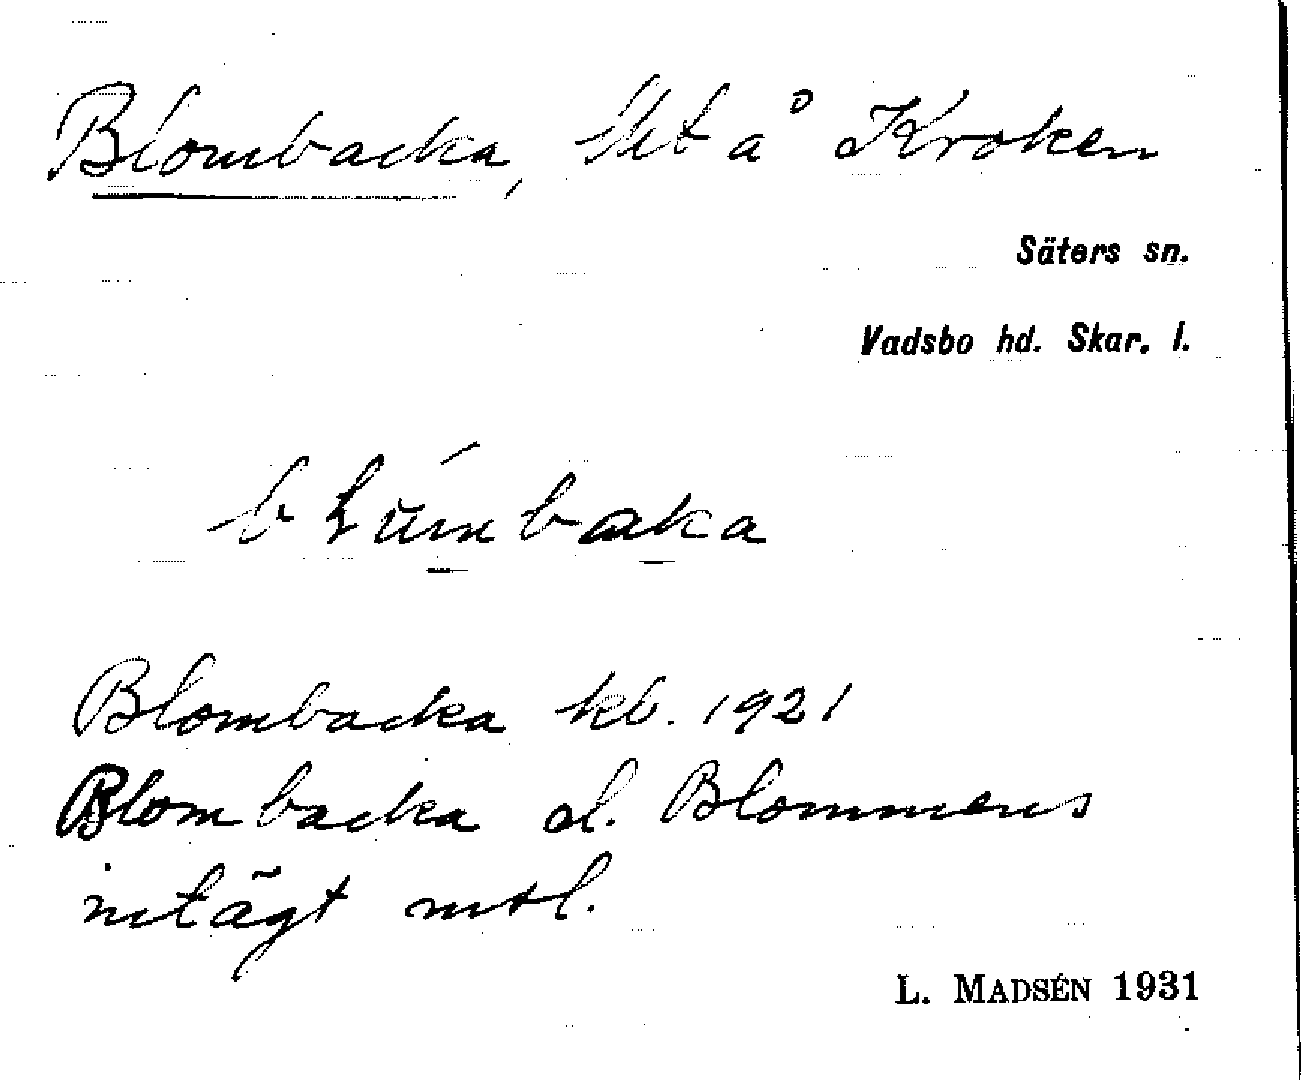 Blombacka, lht å Kroken
Säters sn.
Vadsbo hd. Skar. l.
Blombacka kb. 1921
Blombacka el. Blommens
intägt mtl.
L. MADSÉN 1931